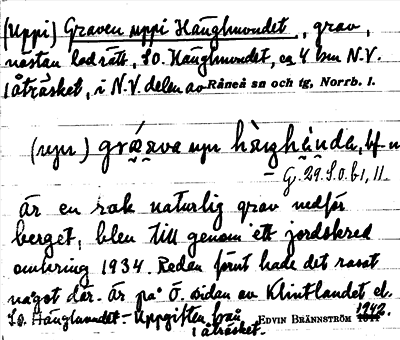 (Uppi) Graven uppi Häughuvudet, grav,
nästan lodrätt, S.O. Häughuvudet, ca 4 km N.V.
Långträsket, i N.V. delen av Råneå sn och tg, Norrb. l.
G. 29. S.O. b. 1, 11.
är en rak naturlig grav nedför
berget, blev till genom ett jordskred
omkring 1934. Redan förut hade det rasat
något där. Är på Ö. sidan av Klintlandet el.
S.O. Häughuvudet – Uppgiften från
EDVIN BRÄNNSTRÖM 1942.